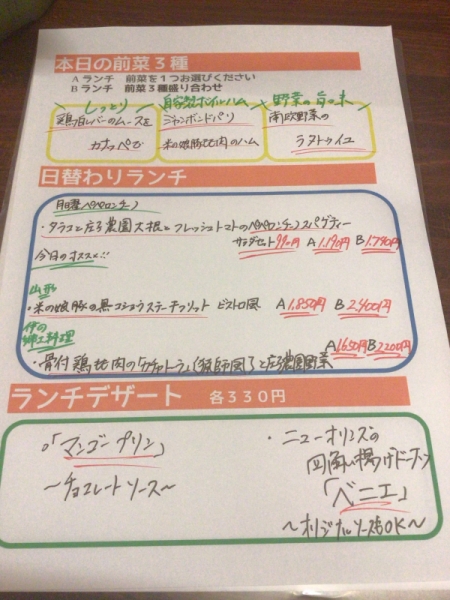 本日の前菜３種
Aランチ 前菜を１つお選びください
Bランチ 前菜３種盛り合わせ
しっとり 自家製ボイルハム 野菜の旨味
鶏白レバーのムースを ジャンボンドパリ 南欧野菜の
カナッペで 米の娘豚枝肉のハム ラタトゥイユ
日替わりランチ
月曜ペペロンチーノ
・タラコと庄 農園大根とフレッシュトマトのペペロンチーノスパゲティー
サラダセット990円 A1.190円 B1.790円
今日のオススメ!!
山形
・米の娘豚の黒コショウステーキフリット ビストロ風 A1.850円 B2.400円
伊の
郷土料理 A1650円 B2200円
・骨付鶏モモ肉の「カチャトーラ」(猟師風)と庄 農園野菜
ランチデザート 各３３０円
○「マンゴープリン」
〜チョコレートソース〜
・ニューオリンズの
四角い揚げドーナツ
「ベニエ」
〜オリジナルソースもOK〜